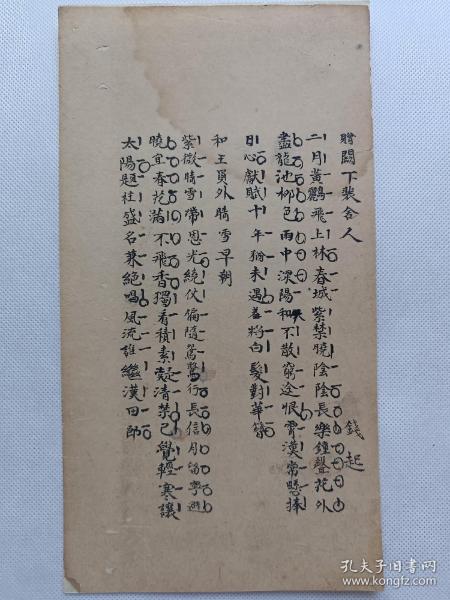 贈闕下裴舍人
錢起
二月黃鸝飛上林春城紫禁曉陰陰長樂鐘聲花外
盡龍池柳色雨中深陽和不散窮途恨霄漢常懸捧
日心獻賦十年猶未遇羞將白髮對華簪
和王員外晴雪早朝
紫微晴雪帶恩光繞仗偏隨鴛鷺行長信月留寧避
曉宜春花滿不飛香獨看積素凝清禁已覺輕寒讓
太陽題柱盛名兼絕唱風流誰繼漢田郎
孔夫子旧书网
www.kongfz.com